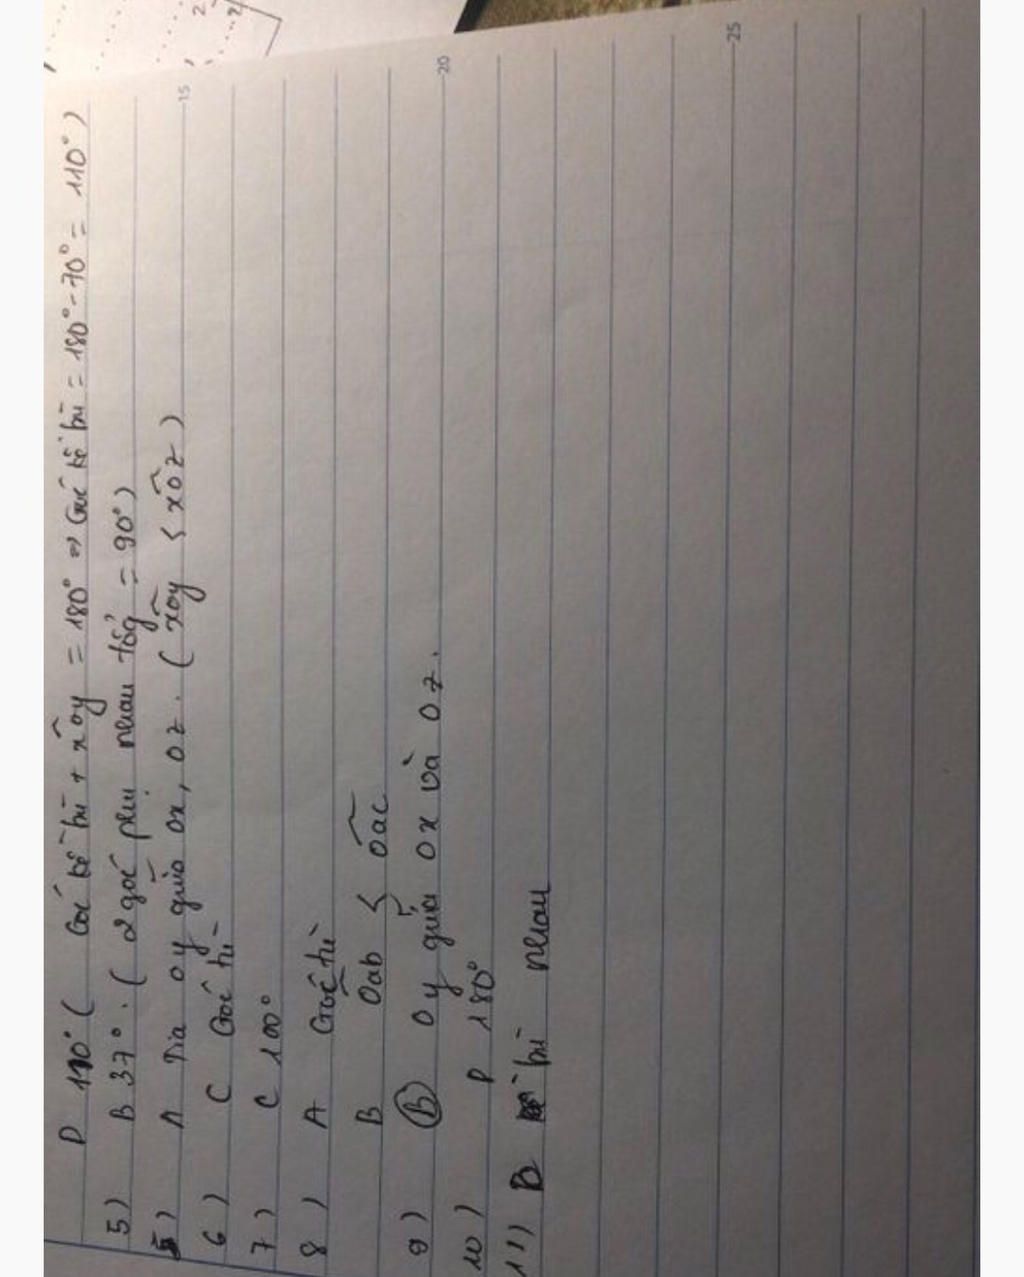 D 110° ( Góc kề bù + xôy = 180° => Góc kề bù = 180° - 70° = 110° )
5) B 37° . ( 2 góc phụ nhau tổg = 90° )
5) A Tia oy giữa ox, oz . ( xôy < xôz )
15
6) C Góc tù
7) C 100°
8) A Góc tù
B Oab < Oac
20
9) B Oy giữa Ox và Oz.
10) D 180°
11) B bù nhau
25